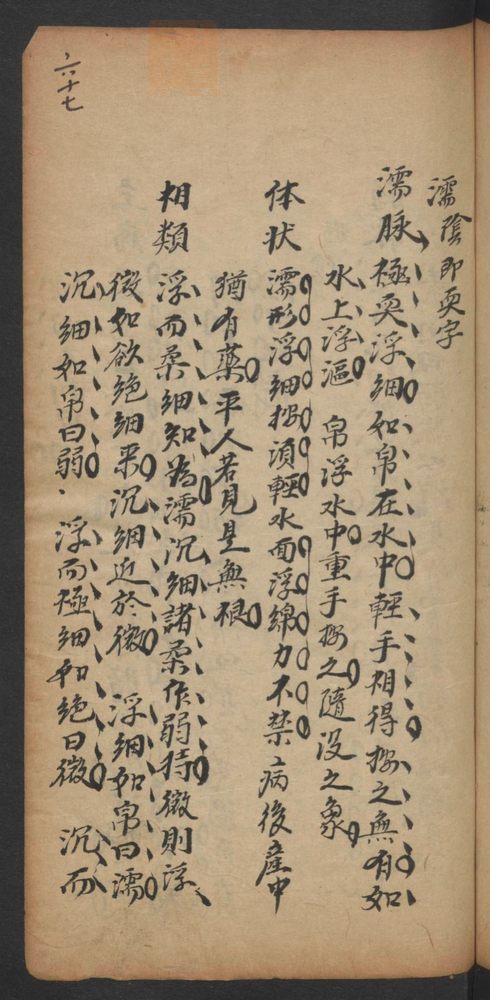 六十七
濡陰即耎字
濡脉 極耎浮細如帛在水中輕手相得按之無有如
水上浮漚 帛浮水中重手按之隨没之象
体状 濡形浮細按須輕水面浮綿力不禁病後産中
猶有藥平人若見是無根
相類 浮而柔細知為濡沉細諸柔作弱持微則浮
微如欲絶細来沉細近於微 浮細如帛曰濡
沉細如帛曰弱 浮而極細如絶曰微 沉而